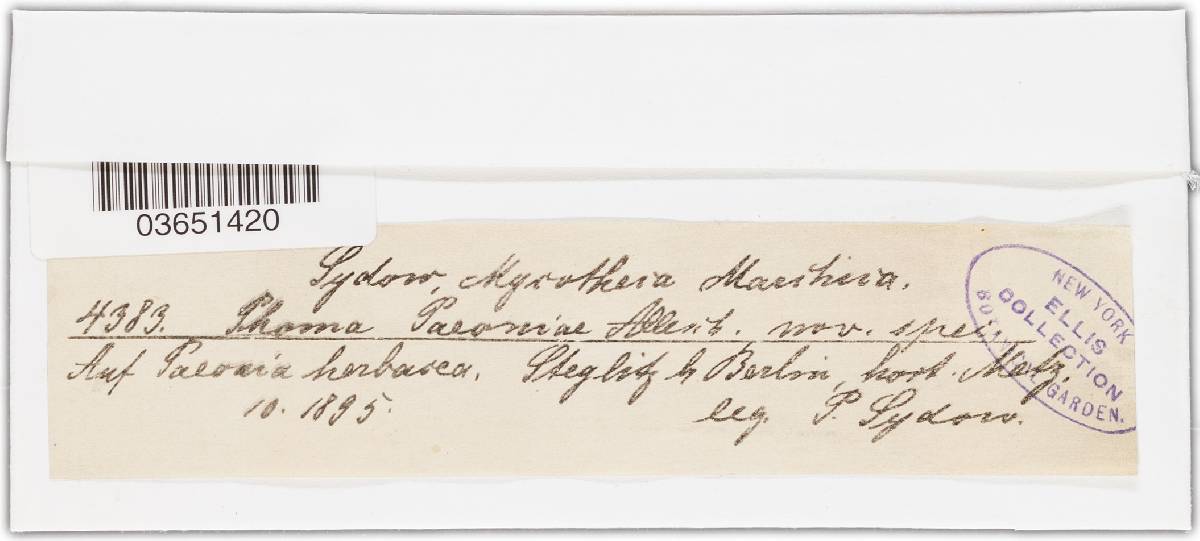 03651420
Sydow, Mycotheca Marchica.
4383. Phoma Paeoniae Allesch. nov. spec.
Auf Paeonia herbacea. Steglitz b Berlin, hort. Metz,
10. 1895. leg. P. Sydow.
NEW YORK
ELLIS
COLLECTION
BOTANICAL GARDEN.